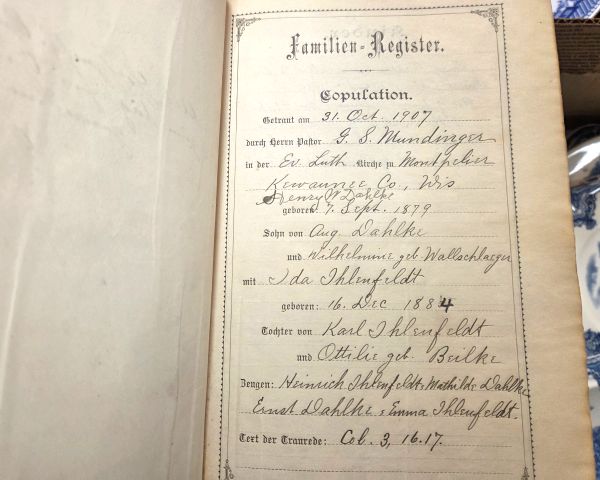 Familien-Register.
Copulation.
Getraut am 31. Oct. 1907
durch Herrn Pastor G. S. Mundinger
in der Ev. Luth Kirche zu Montpelier
Kewaunee Co., Wis
Henry W Dahlke
geboren 7. Sept. 1879
Sohn von Aug. Dahlke
und Wilhelmine geb Wallschlaeger
mit Ida Ihlenfeldt
geboren: 16. Dec 1884
Tochter von Karl Ihlenfeldt
und Ottilie geb. Beilke
Zeugen: Heinrich Ihlenfeldt, Mathilde Dahlke
Ernst Dahlke, Emma Ihlenfeldt.
Text der Traurede: Col. 3, 16.17.